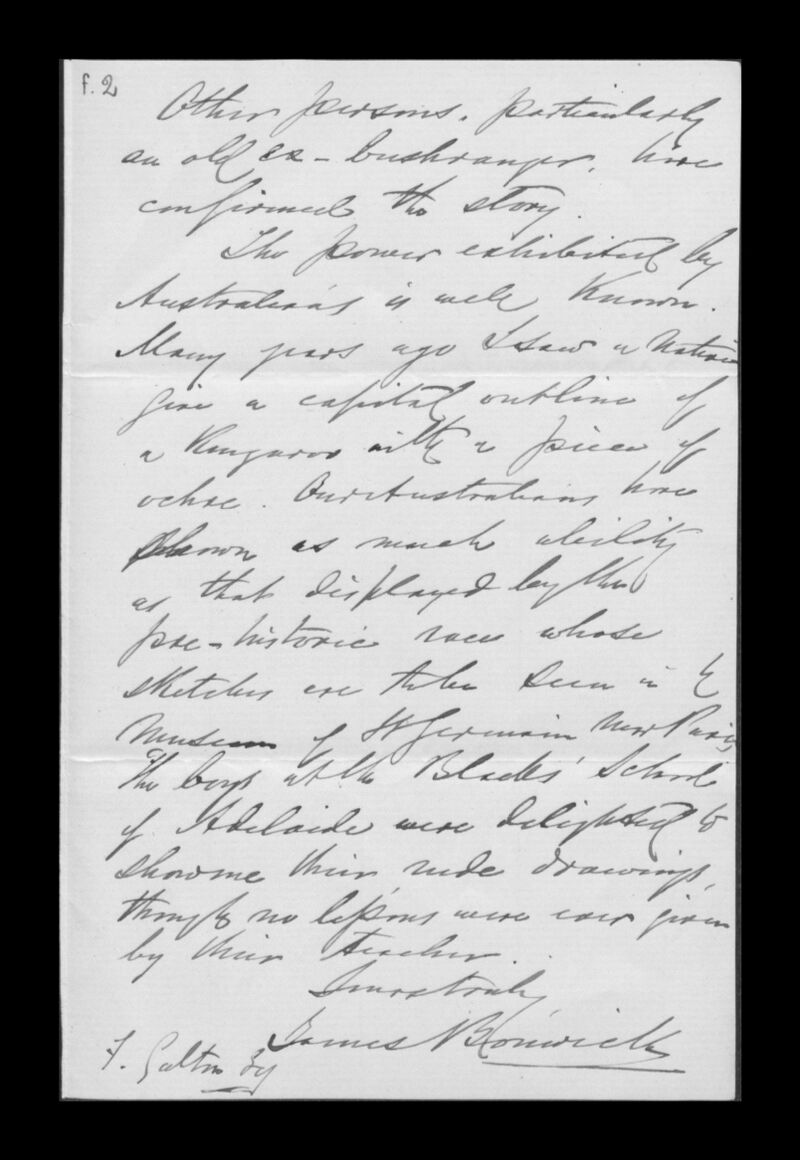 f. 2
Other persons, particularly
an old ex-bushranger, have
confirmed the story.
The power exhibited by
Australians is well known.
Many years ago I saw a Native
give a capital outline of
a Kangaroo with a piece of
ochre. Our Australians have
shown as much ability
as that displayed by the
pre-historic race whose
sketches are to be seen in
Museum of St Germain near Paris,
The boys at the Blacks' School
of Adelaide were delighted to
show me their rude drawings,
though no lessons were ever given
by their teacher.
Yours truly
James Bonwick
F. Galton Esq